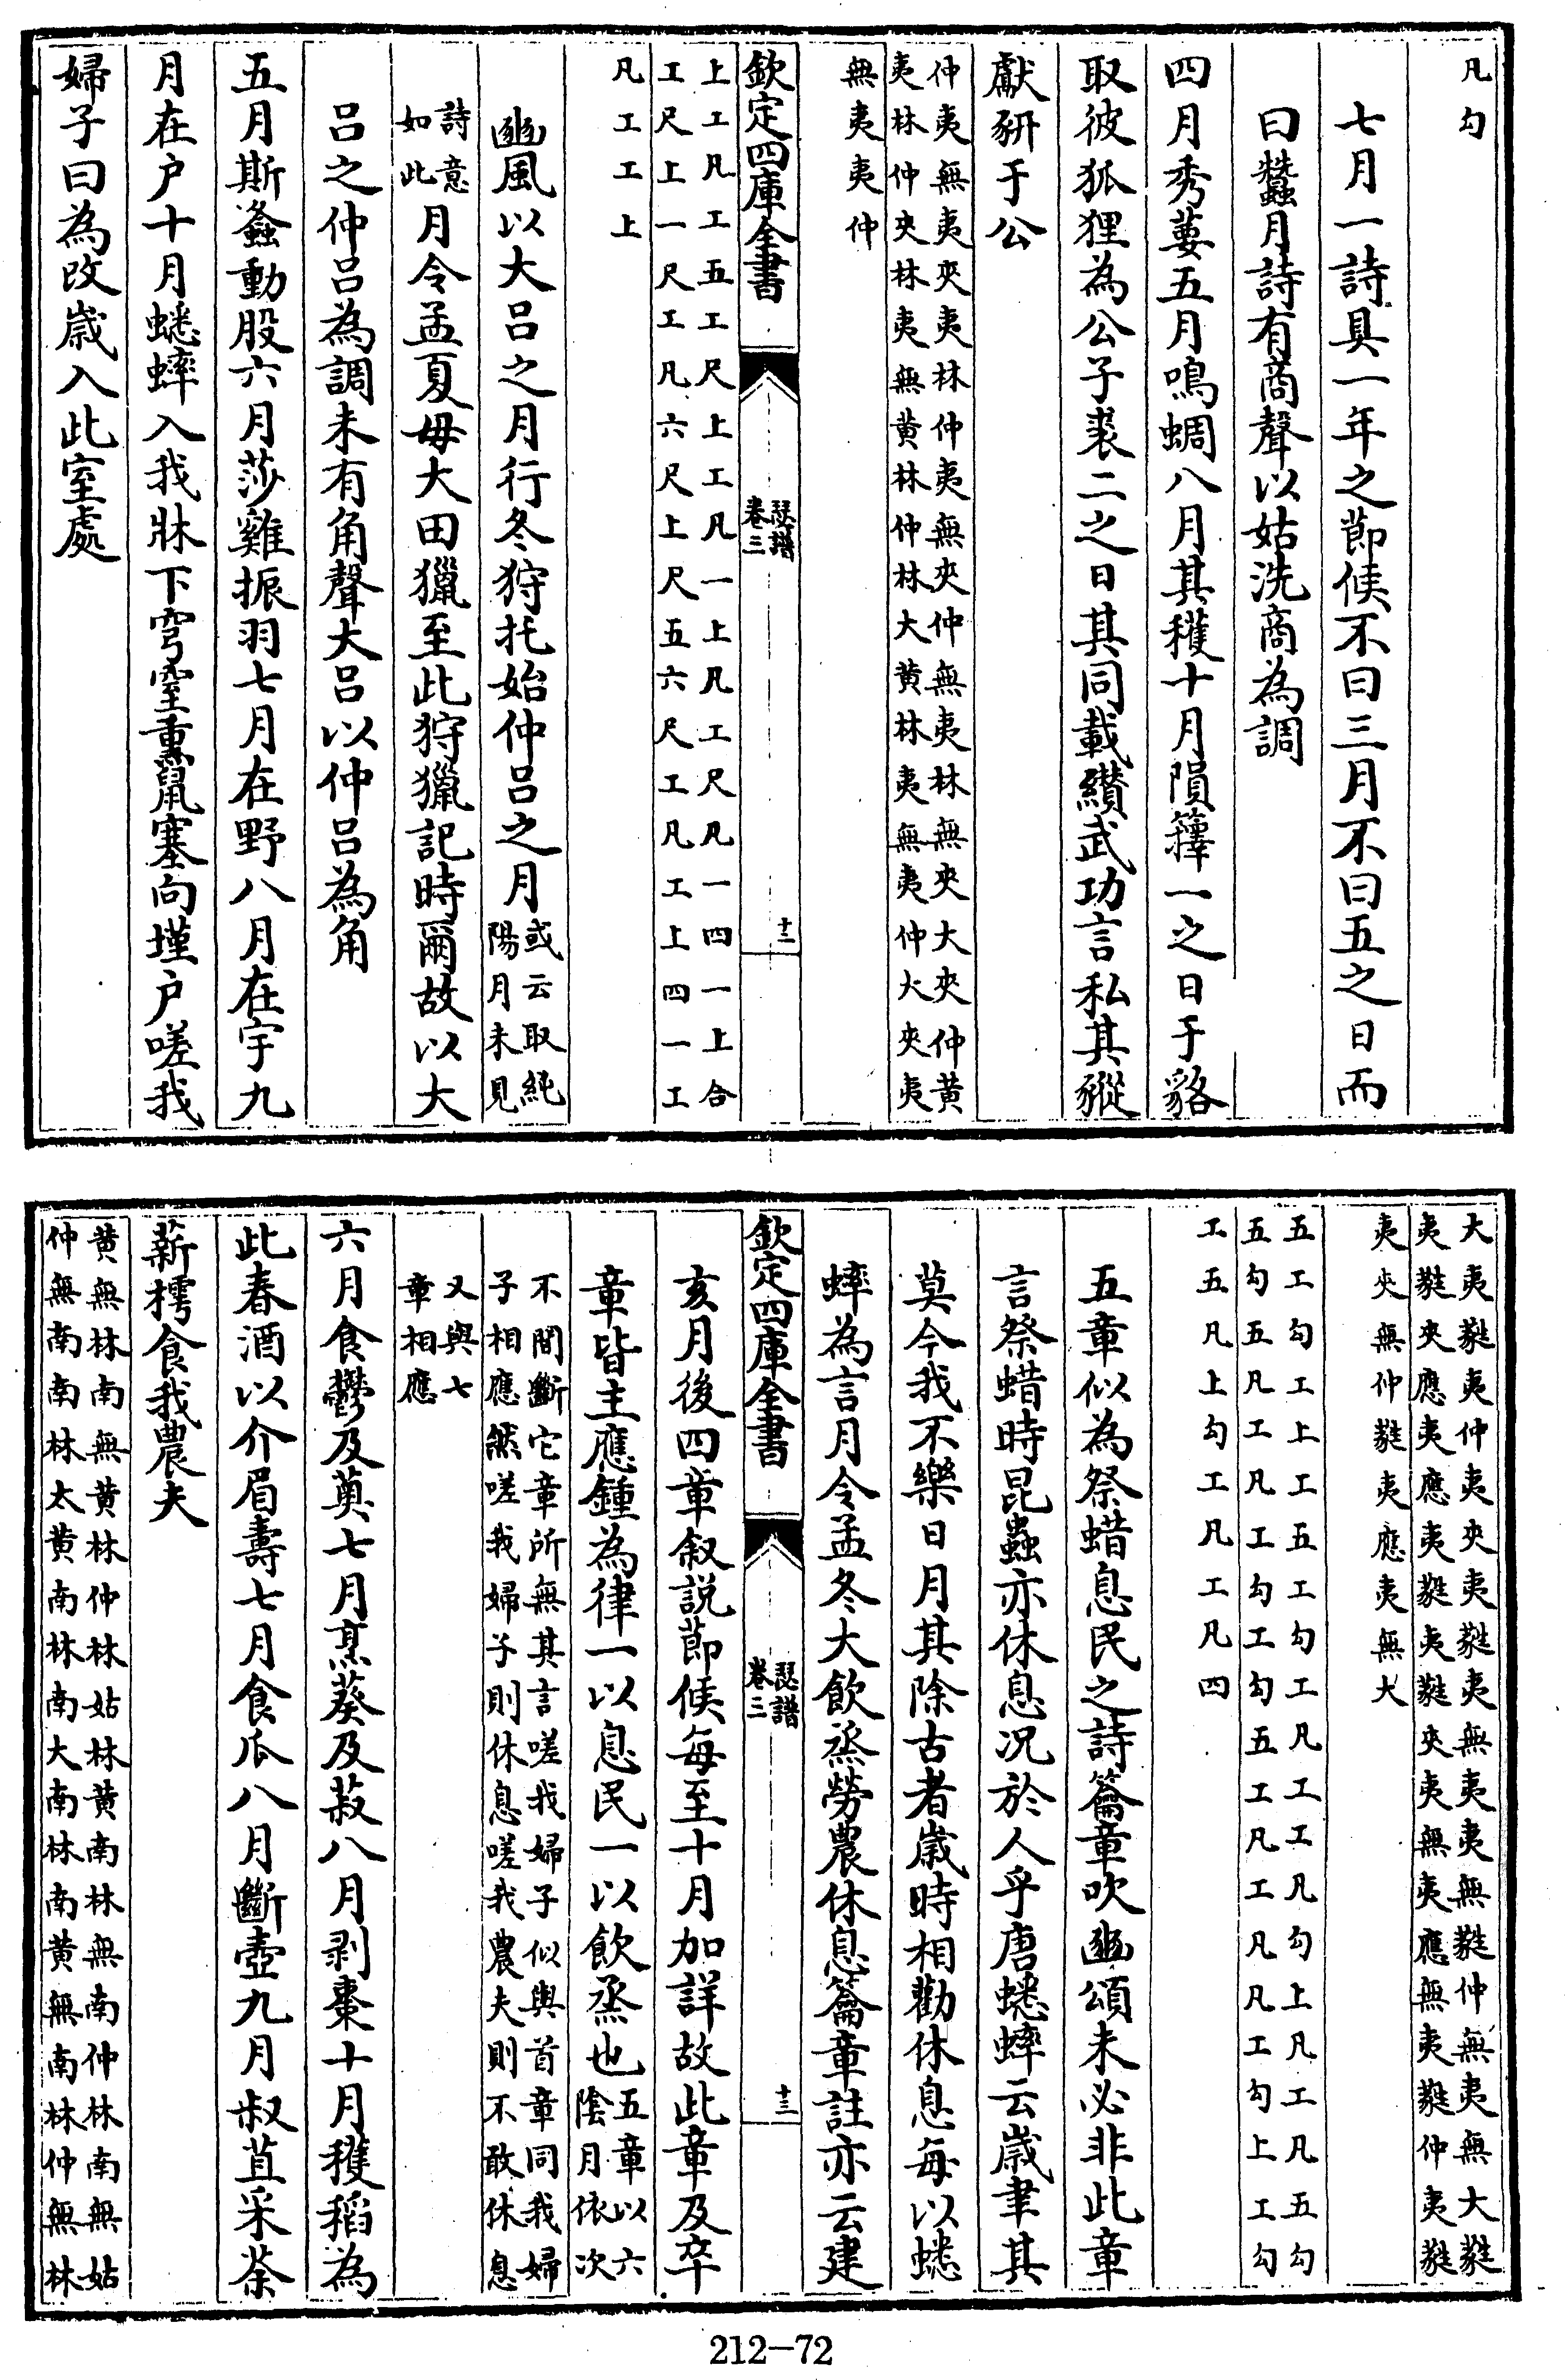 凡勾
七月一詩具一年之節候不曰三月不曰五之日而
曰蠶月詩有商聲以姑洗商為調
四月秀葽五月鳴蜩八月其穫十月隕籜一之日于貉
取彼狐狸為公子裘二之日其同載纘武功言私其豵
獻豜于公
仲夷無夷夾夷林仲夷無夾仲無夷林無夾大夾仲黄
夷林仲夾林夷無黄林仲林大黄林夷無夷仲大夾夷
無夷夷仲
欽定四庫全書
瑟譜
卷三
十二
上工凡工五工尺上工凡一上凡工尺凡一四一上合
工尺上一尺工凡六尺上尺五六尺工凡工上四一工
凡工工上
豳風以大吕之月行冬狩托始仲吕之月或云取純陽月未見
詩意如此月令孟夏毋大田獵至此狩獵記時爾故以大
吕之仲吕為調未有角聲大吕以仲吕為角
五月斯螽動股六月莎雞振羽七月在野八月在宇九
月在户十月蟋蟀入我牀下穹窒熏鼠塞向墐户嗟我
婦子曰為改歳入此室處
大夷蕤夷仲夷夾夷蕤夷無夷夷無蕤仲無夷無大蕤
夷蕤夾應夷應夷蕤夷蕤夾夷無夷應無夷蕤仲夷蕤
夷夾無仲蕤夷應夷無大
五工勾工上工五工勾工凡工工凡勾上凡工凡五勾
五勾五凡工凡工勾工勾五工凡工凡凡工勾上工勾
工五凡上勾工凡工凡四
五章似為祭蜡息民之詩籥章吹豳頌未必非此章
言祭蜡時昆蟲亦休息况於人乎唐蟋蟀云歳聿其
莫今我不樂日月其除古者歳時相勸休息每以蟋
蟀為言月令孟冬大飲烝勞農休息籥章註亦云建
欽定四庫全書
瑟譜
卷三
十三
亥月後四章叙説節候每至十月加詳故此章及卒
章皆主應鍾為律一以息民一以飲烝也五章以六陰月依次
不間斷它章所無其言嗟我婦子似與首章同我婦
子相應然嗟我婦子則休息嗟我農夫則不敢休息
又與七
章相應
六月食鬱及薁七月烹葵及菽八月剥棗十月穫稻為
此春酒以介眉壽七月食瓜八月斷壺九月叔苴采荼
薪樗食我農夫
黄無林南無黄林仲林姑林黄南林無南仲林南無姑
仲無南南林太黄南林南大南林南黄無南林仲無林
212-72